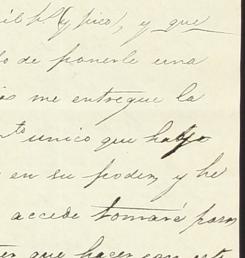 y pico), y que
de ponerle una
me entregue la
unico que hallo
en su poder, y he
accede tomaré para
que hacer con este